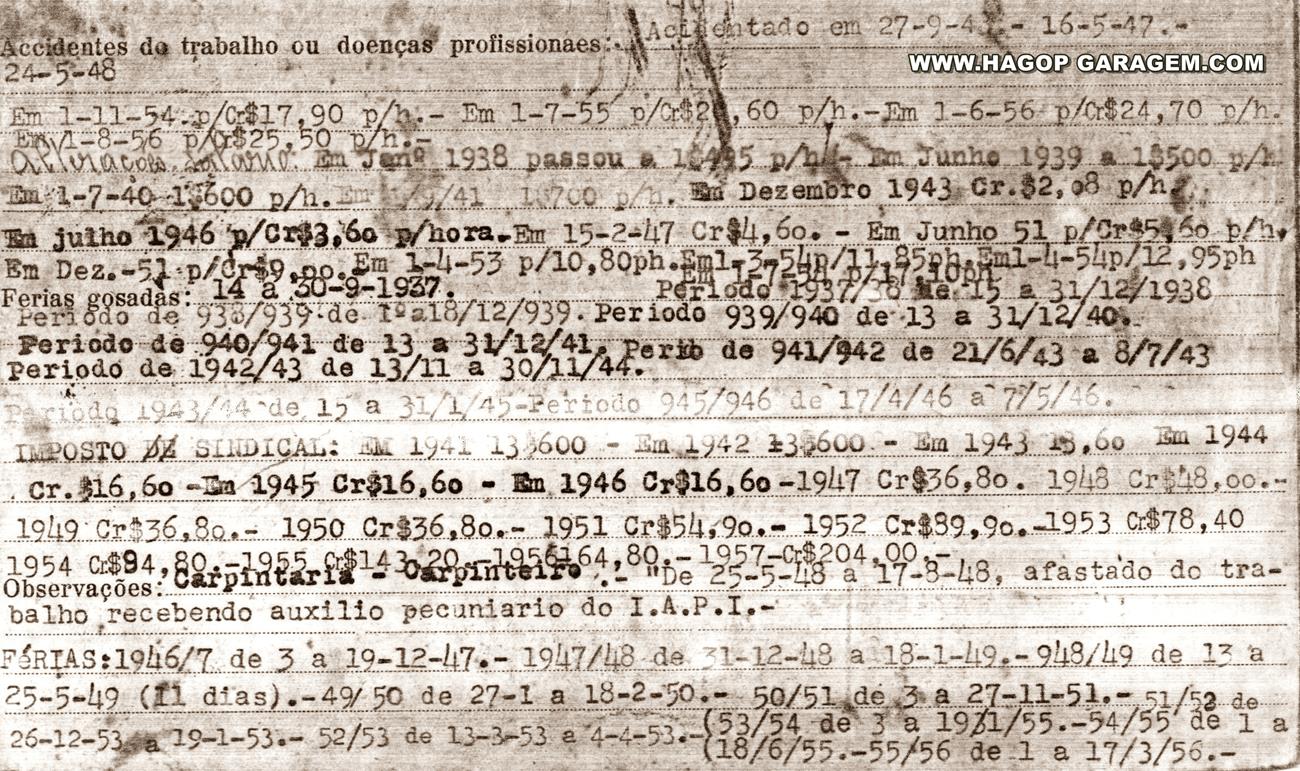 Accidentes do trabalho ou doenças profissionaes: Acidentado em 27-9-4 .- 16-5-47.-
WWW.HAGOP GARAGEM.COM
24-5-48
Em 1-11-54 p/Cr$17,90 p/h.- Em 1-7-55 p/Cr$2 ,60 p/h.-Em 1-6-56 p/Cr$24,70 p/h.
Em 1-8-56 p/Cr$25,50 p/h.-
Em Janº 1938 passou a p/h.- Em Junho 1939 a 1$500 p/h.
Em 1-7-40 1$600 p/h. Em 1/9/41 1$700 p/h. Em Dezembro 1943 Cr.$2,08 p/h.
Em julho 1946 p/Cr$3,60 p/hora.-Em 15-2-47 Cr$4,60. - Em Junho 51 p/Cr$5,60 p/h.
Em Dez.-51 p/Cr$9,00. Em 1-4-53 p/10,80ph. Em1-3-54p/11,85ph.Em1-4-54p/12,95ph
p/17,10ph
Ferias gosadas: 14 a 30-9-1937. Periodo 1937/38 de 15 a 31/12/1938
Periodo de 938/939 de 1ºa18/12/939. Periodo 939/940 de 13 a 31/12/40.
Periodo de 940/941 de 13 a 31/12/41. de 941/942 de 21/6/43 a 8/7/43
Periodo de 1942/43 de 13/11 a 30/11/44.
Periodo 1943/44 de 15 a 31/1/45-Periodo 945/946 de 17/4/46 a 7/5/46.
IMPOSTO SINDICAL: EM 1941 13$600 - Em 1942 13$600 - Em 1943 13,60 Em 1944
Cr.$16,60 -Em 1945 Cr$16,60 - Em 1946 Cr$16,60 -1947 Cr$36,80. 1948 Cr$48,00.-
1949 Cr$36,80.- 1950 Cr$36,80.- 1951 Cr$54,90.- 1952 Cr$89,90.-1953 Cr$78,40
1954 Cr$94,80.-1955 Cr$143,20.-1956 164,80.-1957-Cr$204,00.-
Observações: Carpintaria - Carpinteiro .- "De 25-5-48 a 17-8-48, afastado do tra-
balho recebendo auxilio pecuniario do I.A.P.I.-
FéRIAS:1946/7 de 3 a 19-12-47.- 1947/48 de 31-12-48 a 18-1-49.-948/49 de 13 a
25-5-49 (11 dias).-49/50 de 27-1 a 18-2-50.- 50/51 de 3 a 27-11-51.- 51/52 de
26-12-53 a 19-1-53.- 52/53 de 13-3-53 a 4-4-53.-(53/54 de 3 a 19/1/55.-54/55 de 1 a
(18/6/55.-55/56 de 1 a 17/3/56.-